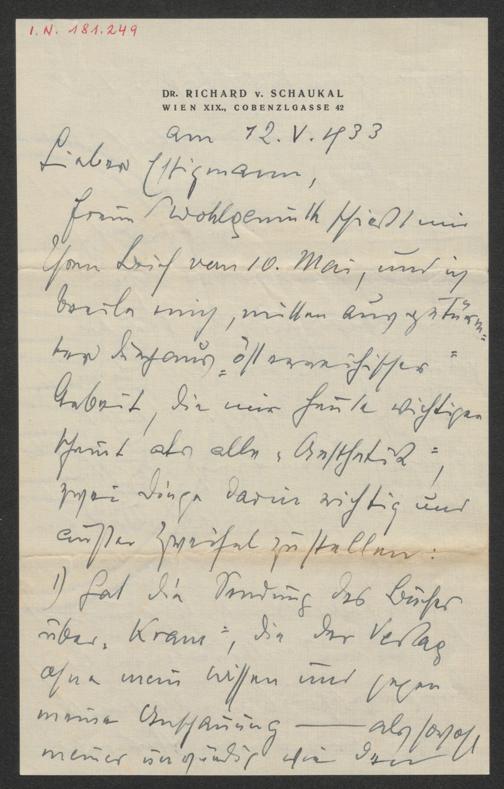 I. N. 181.249
DR. RICHARD v. SCHAUKAL
WIEN XIX., COBENZLGASSE 42
am 12. V. 1933
Lieber
Frau Wohlgemuth schickt mir
Ihren Brief vom 10. Mai, und ich
beeile mich, mitten aus
durchaus „österreichischer"
Arbeit, die mir heute wichtiger
scheint als alle „Aesthetik",
zwei Dinge darin richtig und
außer Zweifel zu stellen:
1) hat die Sendung des Buches
über „Kraus", die der Verlag
ohne mein Wissen und gegen
meine Anschauung — als sowohl
meiner unwürdig wie